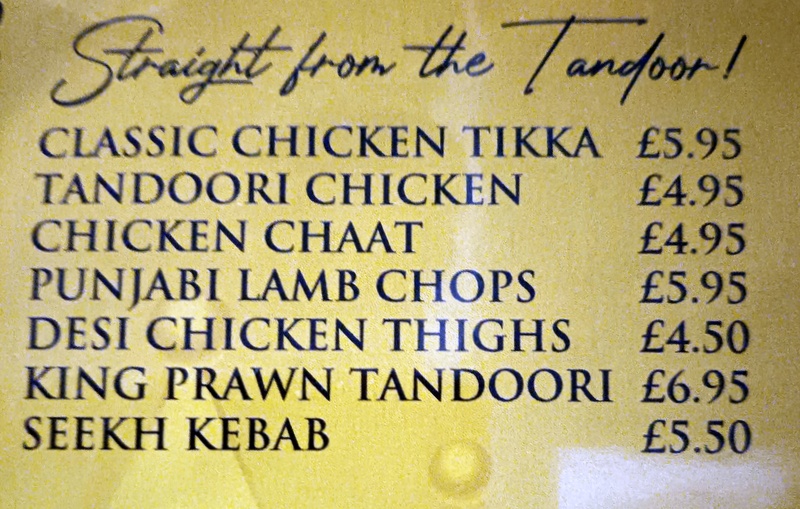 Straight from the Tandoor!
CLASSIC CHICKEN TIKKA £5.95
TANDOORI CHICKEN £4.95
CHICKEN CHAAT £4.95
PUNJABI LAMB CHOPS £5.95
DESI CHICKEN THIGHS £4.50
KING PRAWN TANDOORI £6.95
SEEKH KEBAB £5.50